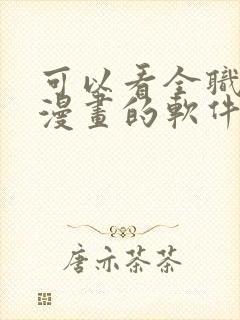 可以看全職
漫畫的軟件
唐亦茶茶